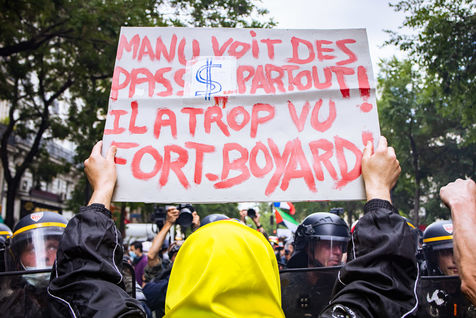 MANU VOIT DES
PASS $ PARTOUT!
IL A TROP VU
FORT.BOYARD!